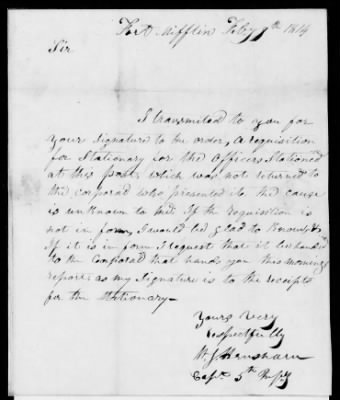 Fort Mifflin Feby 9th 1814
Sir
I transmited to you for
your Signature to be order, a requisition
for Stationary for the Officers Stationed
at this post which was not returned to
the corporal who presented it the cause
is unknown to me If the requisition is
not in form, I would be glad to Know it
If it is in form I request that it be handed
to the Corporal that hands you this mornings
report, as my Signature is to the receipts
for the Stationary—
Yours Very
respectfully
Capt 5th Infy